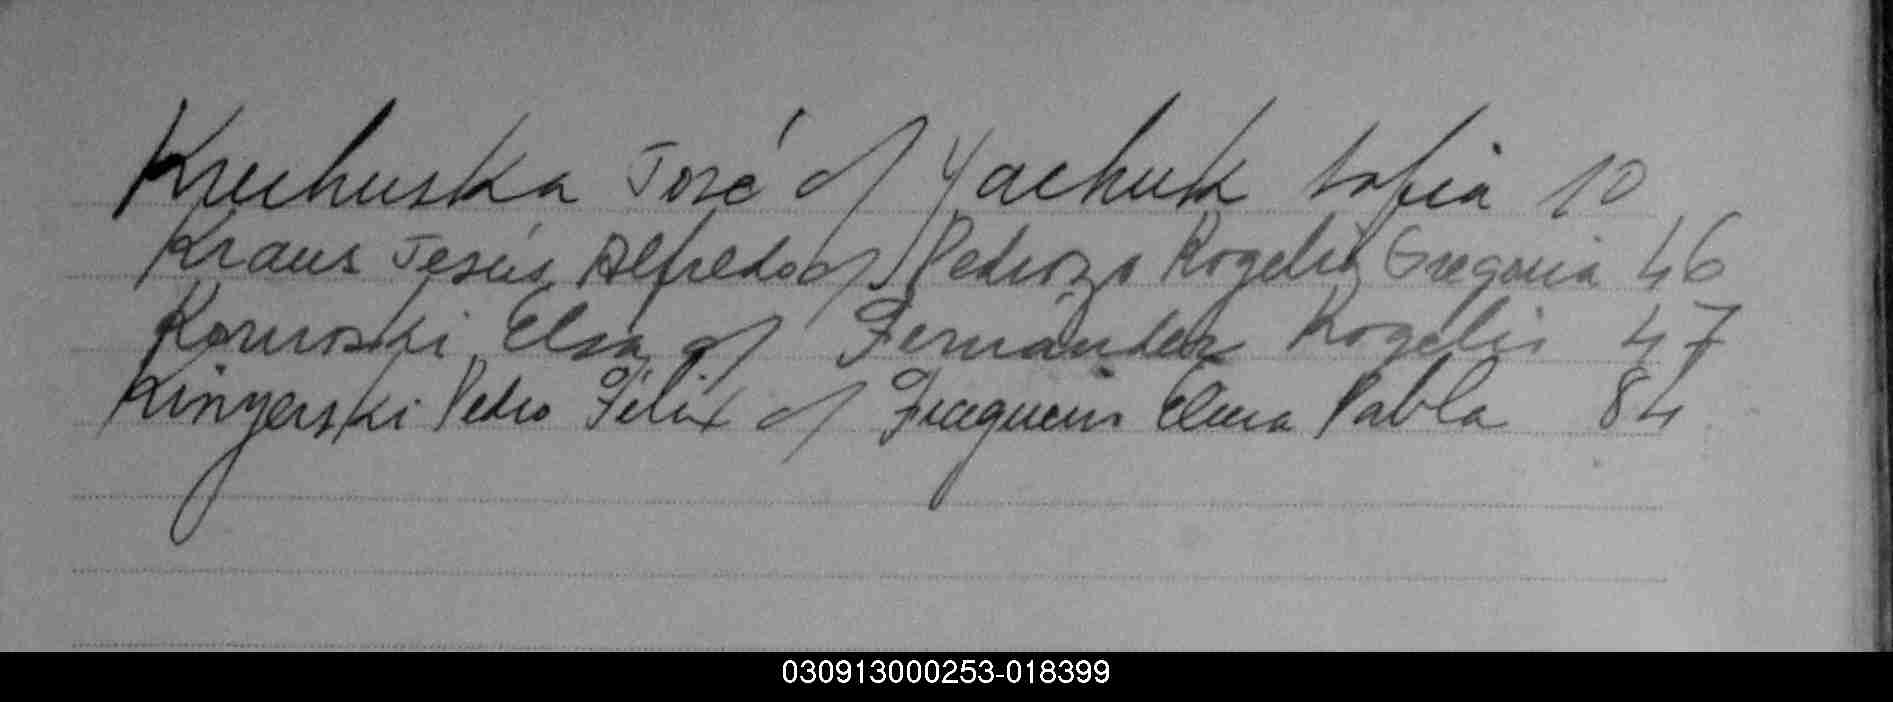 Kruchuska José c/ Yachuk Sofia 10
Kraus Jesús Alfredo c/ Pedrozo Rogelia Gregoria 46
Koruoski Elsa c/ Fernández Rogelio 47
Kinyerski Pedro Félix c/ Elena Pabla 84
030913000253-018399